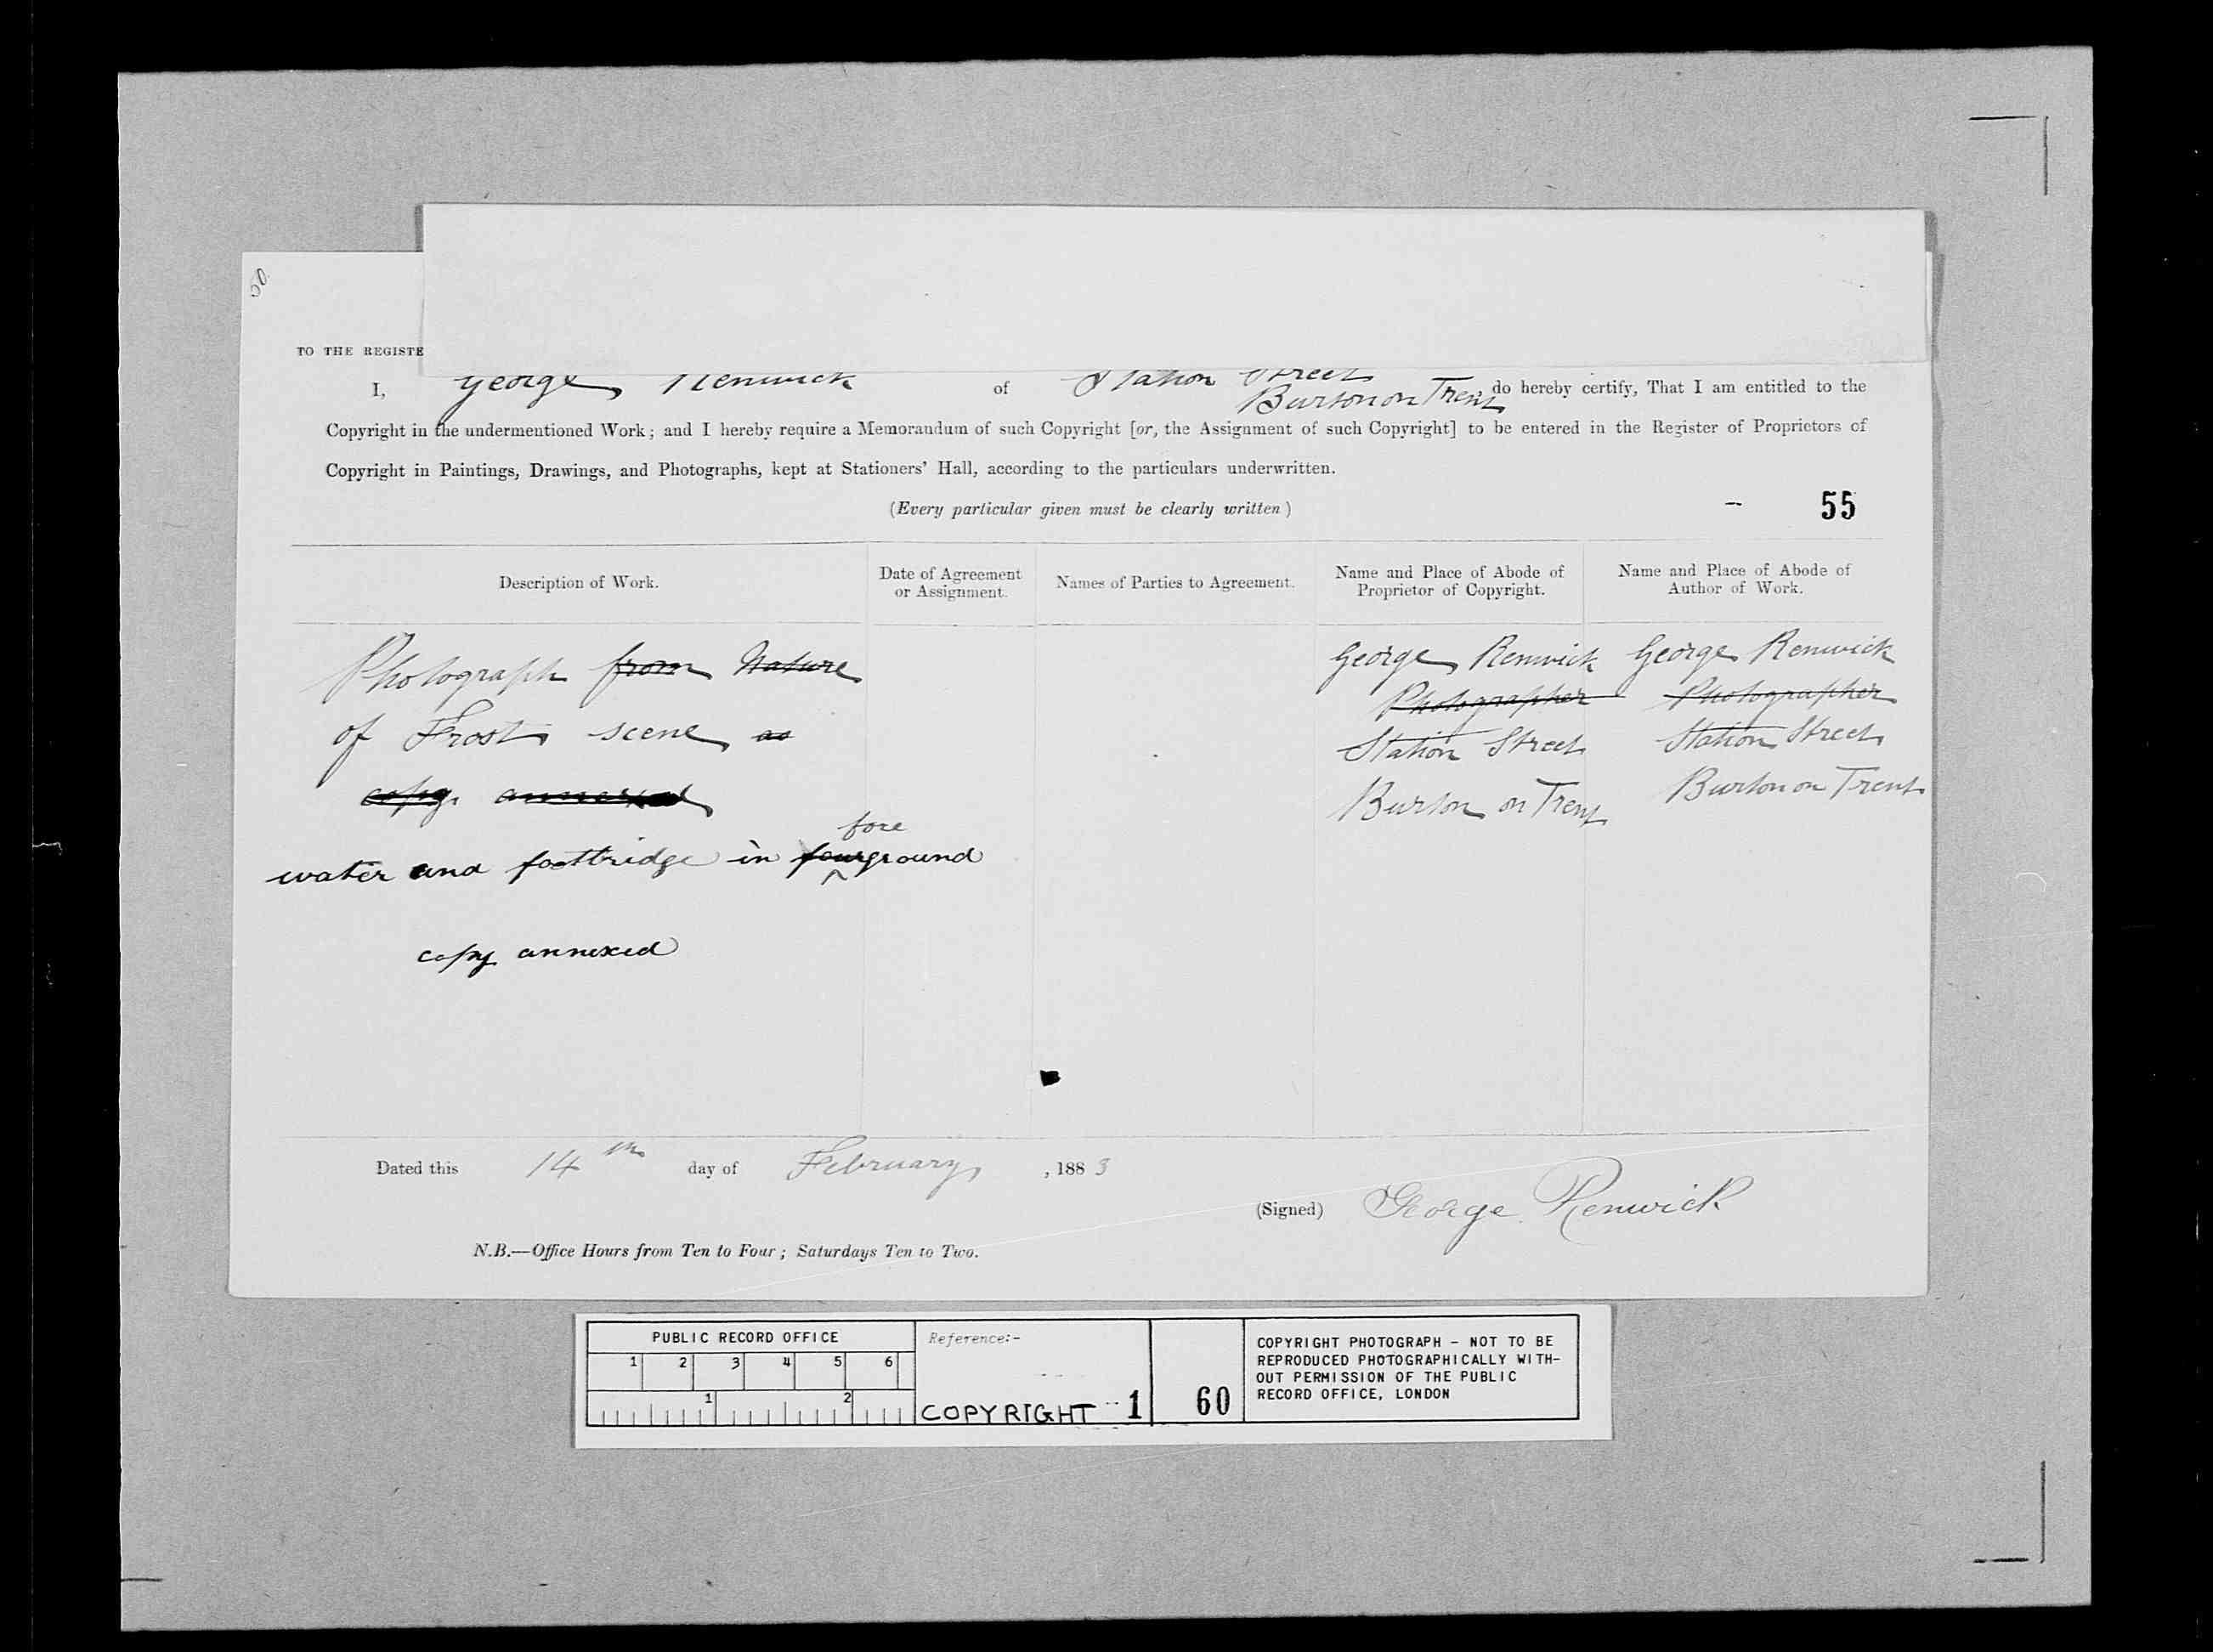 50
TO THE REGISTE
I, George Renwick of Station Street
Burton on Trent do hereby certify, That I am entitled to the
Copyright in the undermentioned Work; and I hereby require a Memorandum of such Copyright [or, the Assignment of such Copyright] to be entered in the Register of Proprietors of
Copyright in Paintings, Drawings, and Photographs, kept at Stationers' Hall, according to the particulars underwritten.
(Every particular given must be clearly written)
55
Description of Work.
Date of Agreement
or Assignment.
Names of Parties to Agreement.
Name and Place of Abode of
Proprietor of Copyright.
Name and Place of Abode of
Author of Work.
Photograph from Nature
of Frost scene as
copy annexed
fore
water and footbridge in fourground
copy annexed
George Renwick
Photographer
Station Street
Burton on Trent
George Renwick
Photographer
Station Street
Burton on Trent
Dated this 14th day of February, 1883
(Signed) George Renwick
N.B.—Office Hours from Ten to Four; Saturdays Ten to Two.
PUBLIC RECORD OFFICE
1 2 3 4 5 6
1 2
Reference:-
COPYRIGHT 1
60
COPYRIGHT PHOTOGRAPH - NOT TO BE
REPRODUCED PHOTOGRAPHICALLY WITH-
OUT PERMISSION OF THE PUBLIC
RECORD OFFICE, LONDON